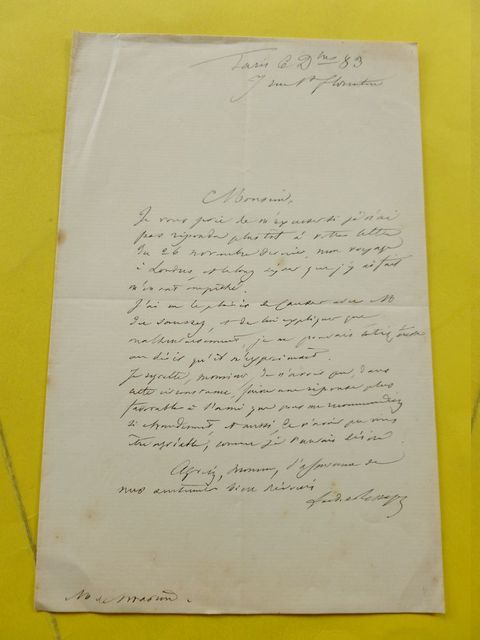 Paris 6 Dbre 83
7 rue St florentin
Monsieur,
Je vous prie de m'excuser si je n'ai
pas répondu plus tôt à votre lettre
du 26 novembre dernier, mon voyage
à Londres, et le long séjour que j'y ai fait
m'en ont empêché.
J'ai eu le plaisir de causer avec Mr
du & de lui expliquer que
malheureusement, je ne pouvais
au désir qu'il m'exprimait.
Je regrette, monsieur, de n'avoir pu, dans
cette circonstance, faire une réponse plus
favorable à l'ami que vous me recommandez
si chaudement et aussi de n'avoir pu vous
être agréable, comme je l'aurais désiré.
Agréez, monsieur, l'assurance de
mes sentiments bien dévoués
Mr de